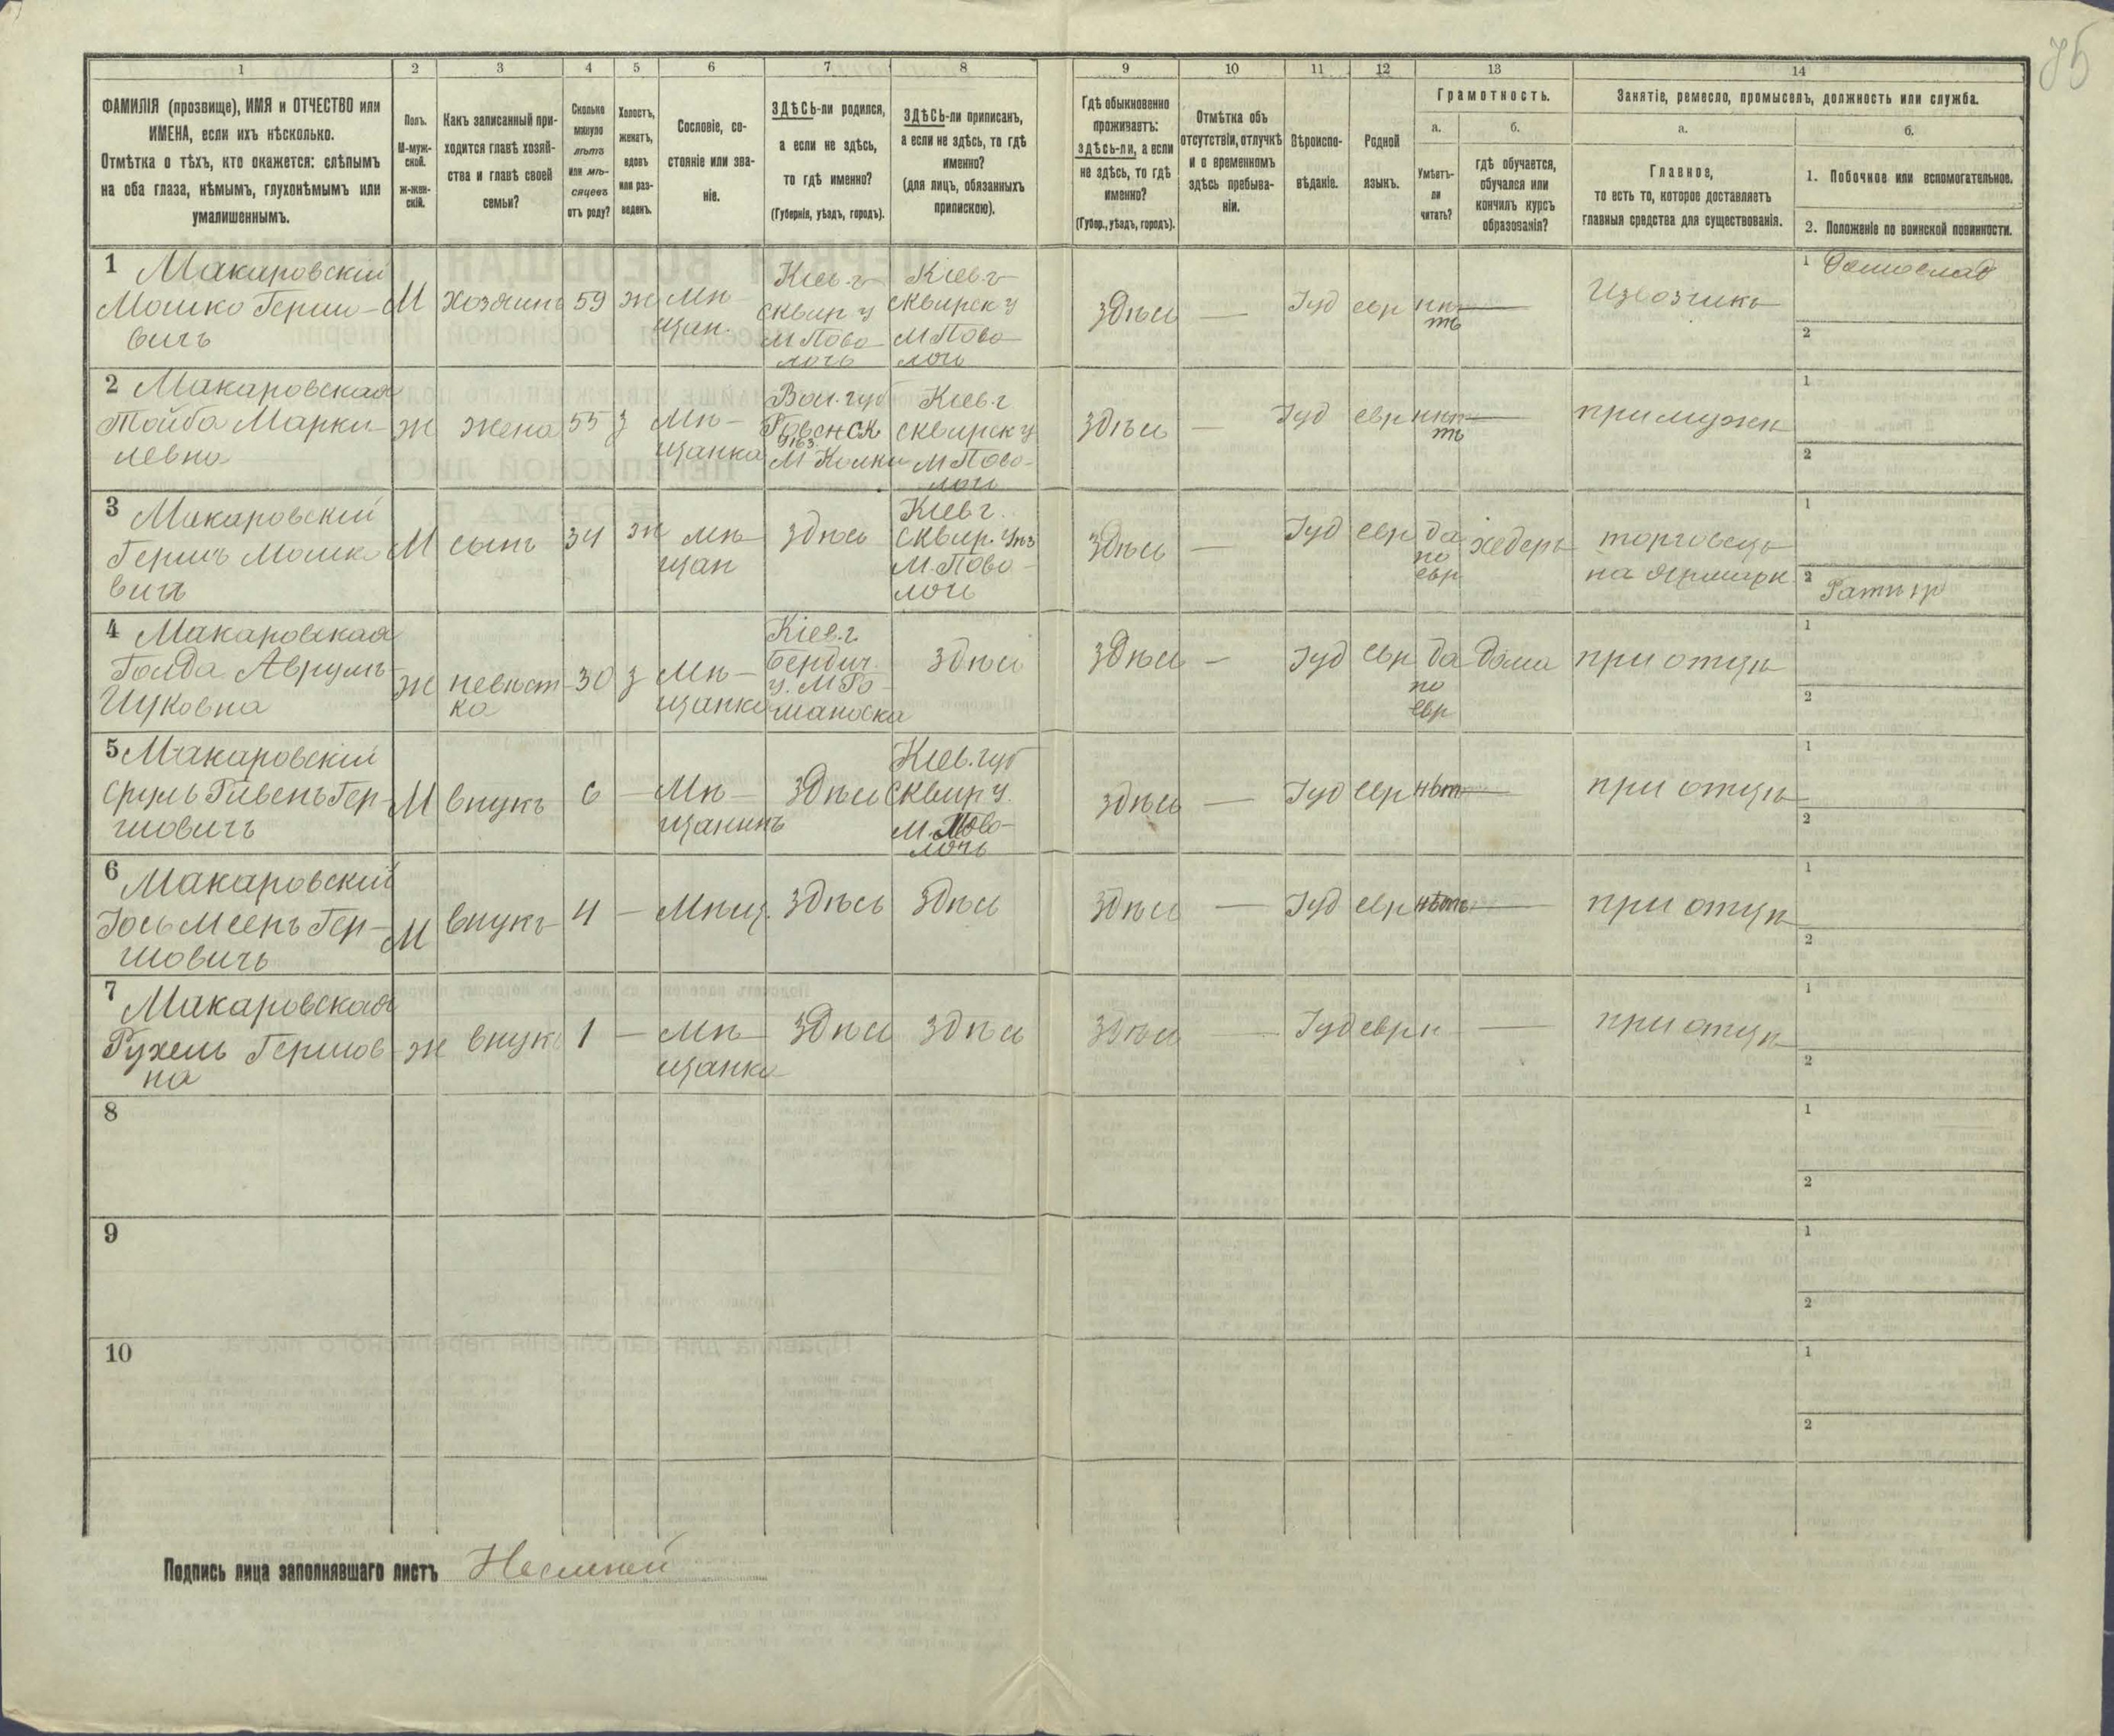 75
1 2 3 4 5 6 7 8 9 10 11 12 13 14
ФАМИЛІЯ (прозвище), ИМЯ и ОТЧЕСТВО или
ИМЕНА, если ихъ нѣсколько.
Отмѣтка о тѣхъ, кто окажется: слѣпымъ
на оба глаза, нѣмымъ, глухонѣмымъ или
умалишеннымъ.
Полъ.
М-муж-
ской.
ж-жен-
скій.
Какъ записанный при-
ходится главѣ хозяй-
ства и главѣ своей
семьи?
Сколько
минуло
лѣтъ
или мѣ-
сяцевъ
отъ роду?
Холостъ,
женатъ,
вдовъ
или раз-
веденъ.
Сословіе, со-
стояніе или зва-
ніе.
ЗДѢСЬ-ли родился,
а если не здѣсь,
то гдѣ именно?
(Губернія, уѣздъ, городъ).
ЗДѢСЬ-ли приписанъ,
а если не здѣсь, то гдѣ
именно?
(для лицъ, обязанныхъ
припискою).
Гдѣ обыкновенно
проживаетъ:
здѣсь-ли, а если
не здѣсь, то гдѣ
именно?
(Губер., уѣздъ, городъ).
Отмѣтка объ
отсутствіи, отлучкѣ
и о временномъ
здѣсь пребыва-
ніи.
Вѣроиспо-
вѣданіе.
Родной
языкъ.
Грамотность.
а.
Умѣетъ-
ли
читать?
б.
гдѣ обучается,
обучался или
кончилъ курсъ
образованія?
Занятіе, ремесло, промыселъ, должность или служба.
а.
Главное,
то есть то, которое доставляетъ
главныя средства для существованія.
б.
1. Побочное или вспомогательное.
2. Положеніе по воинской повинности.
1 Макаровскій
Мошко Герш-
вичъ
М
хозяинъ
59
ж
Мѣ-
щан.
Кіев. г
Сквир у
М Пово-
лочь
Кіев. г
Сквирск у
М Пово-
лочь
Здѣсь
—
Іуд
евр
нѣ-
тъ
—
Извозчикъ
1
2
2 Макаровская
Тойба Марки-
левна
ж
жена
55
з
Мѣ-
щанка
Вол. губ
Ровенск
уѣз.
М Колки
Кіев. г
Сквирск у
М Пово-
лочь
Здѣсь
—
Іуд
евр
—
при мужѣ
1
2
3 Макаровскій
Гершъ Мошко
вичъ
М
сынъ
34
ж
мѣ-
щан
здѣсь
Кіев г.
Сквир. уѣз
М. Пово-
лочь
Здѣсь
—
Іуд
евр
да
по
евр
хедеръ
торговецъ
на ярмарк
1
2
4 Макаровская
Голда Аврумъ-
Ицковна
ж
невѣст-
ка
30
з
Мѣ-
щанка
Кіев. г.
Бердич.
у. М Ро-
мановка
Здѣсь
Здѣсь
—
Іуд
евр
да
по
евр
дома
при отцѣ
1
2
5 Макаровскій
Сруль Ривенъ Гер-
шовичъ
М
внукъ
6
—
Мѣ-
щанинъ
Здѣсь
Кіев. губ
Сквир у.
М. Пово-
лочь
здѣсь
—
Іуд
евр
нѣт
—
при отцѣ
1
2
6 Макаровскій
Іось Меенъ Гер-
шовичъ
М
внукъ
4
—
Мѣщ.
Здѣсь
Здѣсь
Здѣсь
—
Іуд
евр
нѣтъ
—
при отцѣ
1
2
7 Макаровская
Рухель Гершов-
на
ж
внук
1
—
Мѣ-
щанка
Здѣсь
Здѣсь
Здѣсь
—
Іуд
евр
н
—
при отцѣ
1
2
8
1
2
9
1
2
10
1
2
Подпись лица заполнявшаго листъ